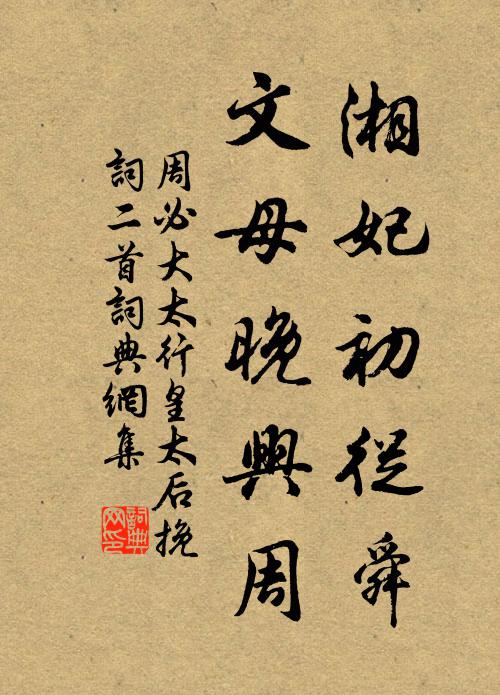 湘妃初從舜
文母晚興周
周必大太行皇太后挽
詞二首詞典網集
詞典网印